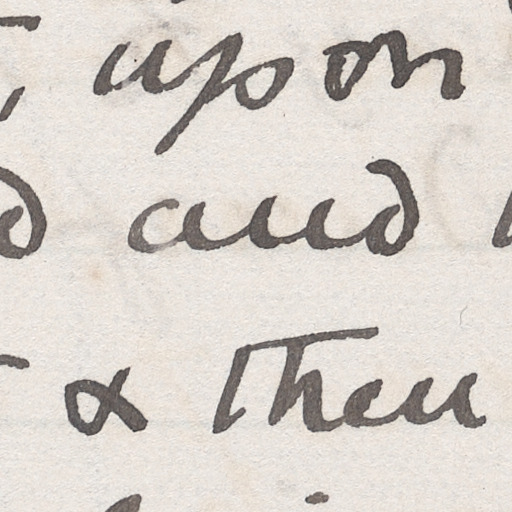 , upon
and
& then